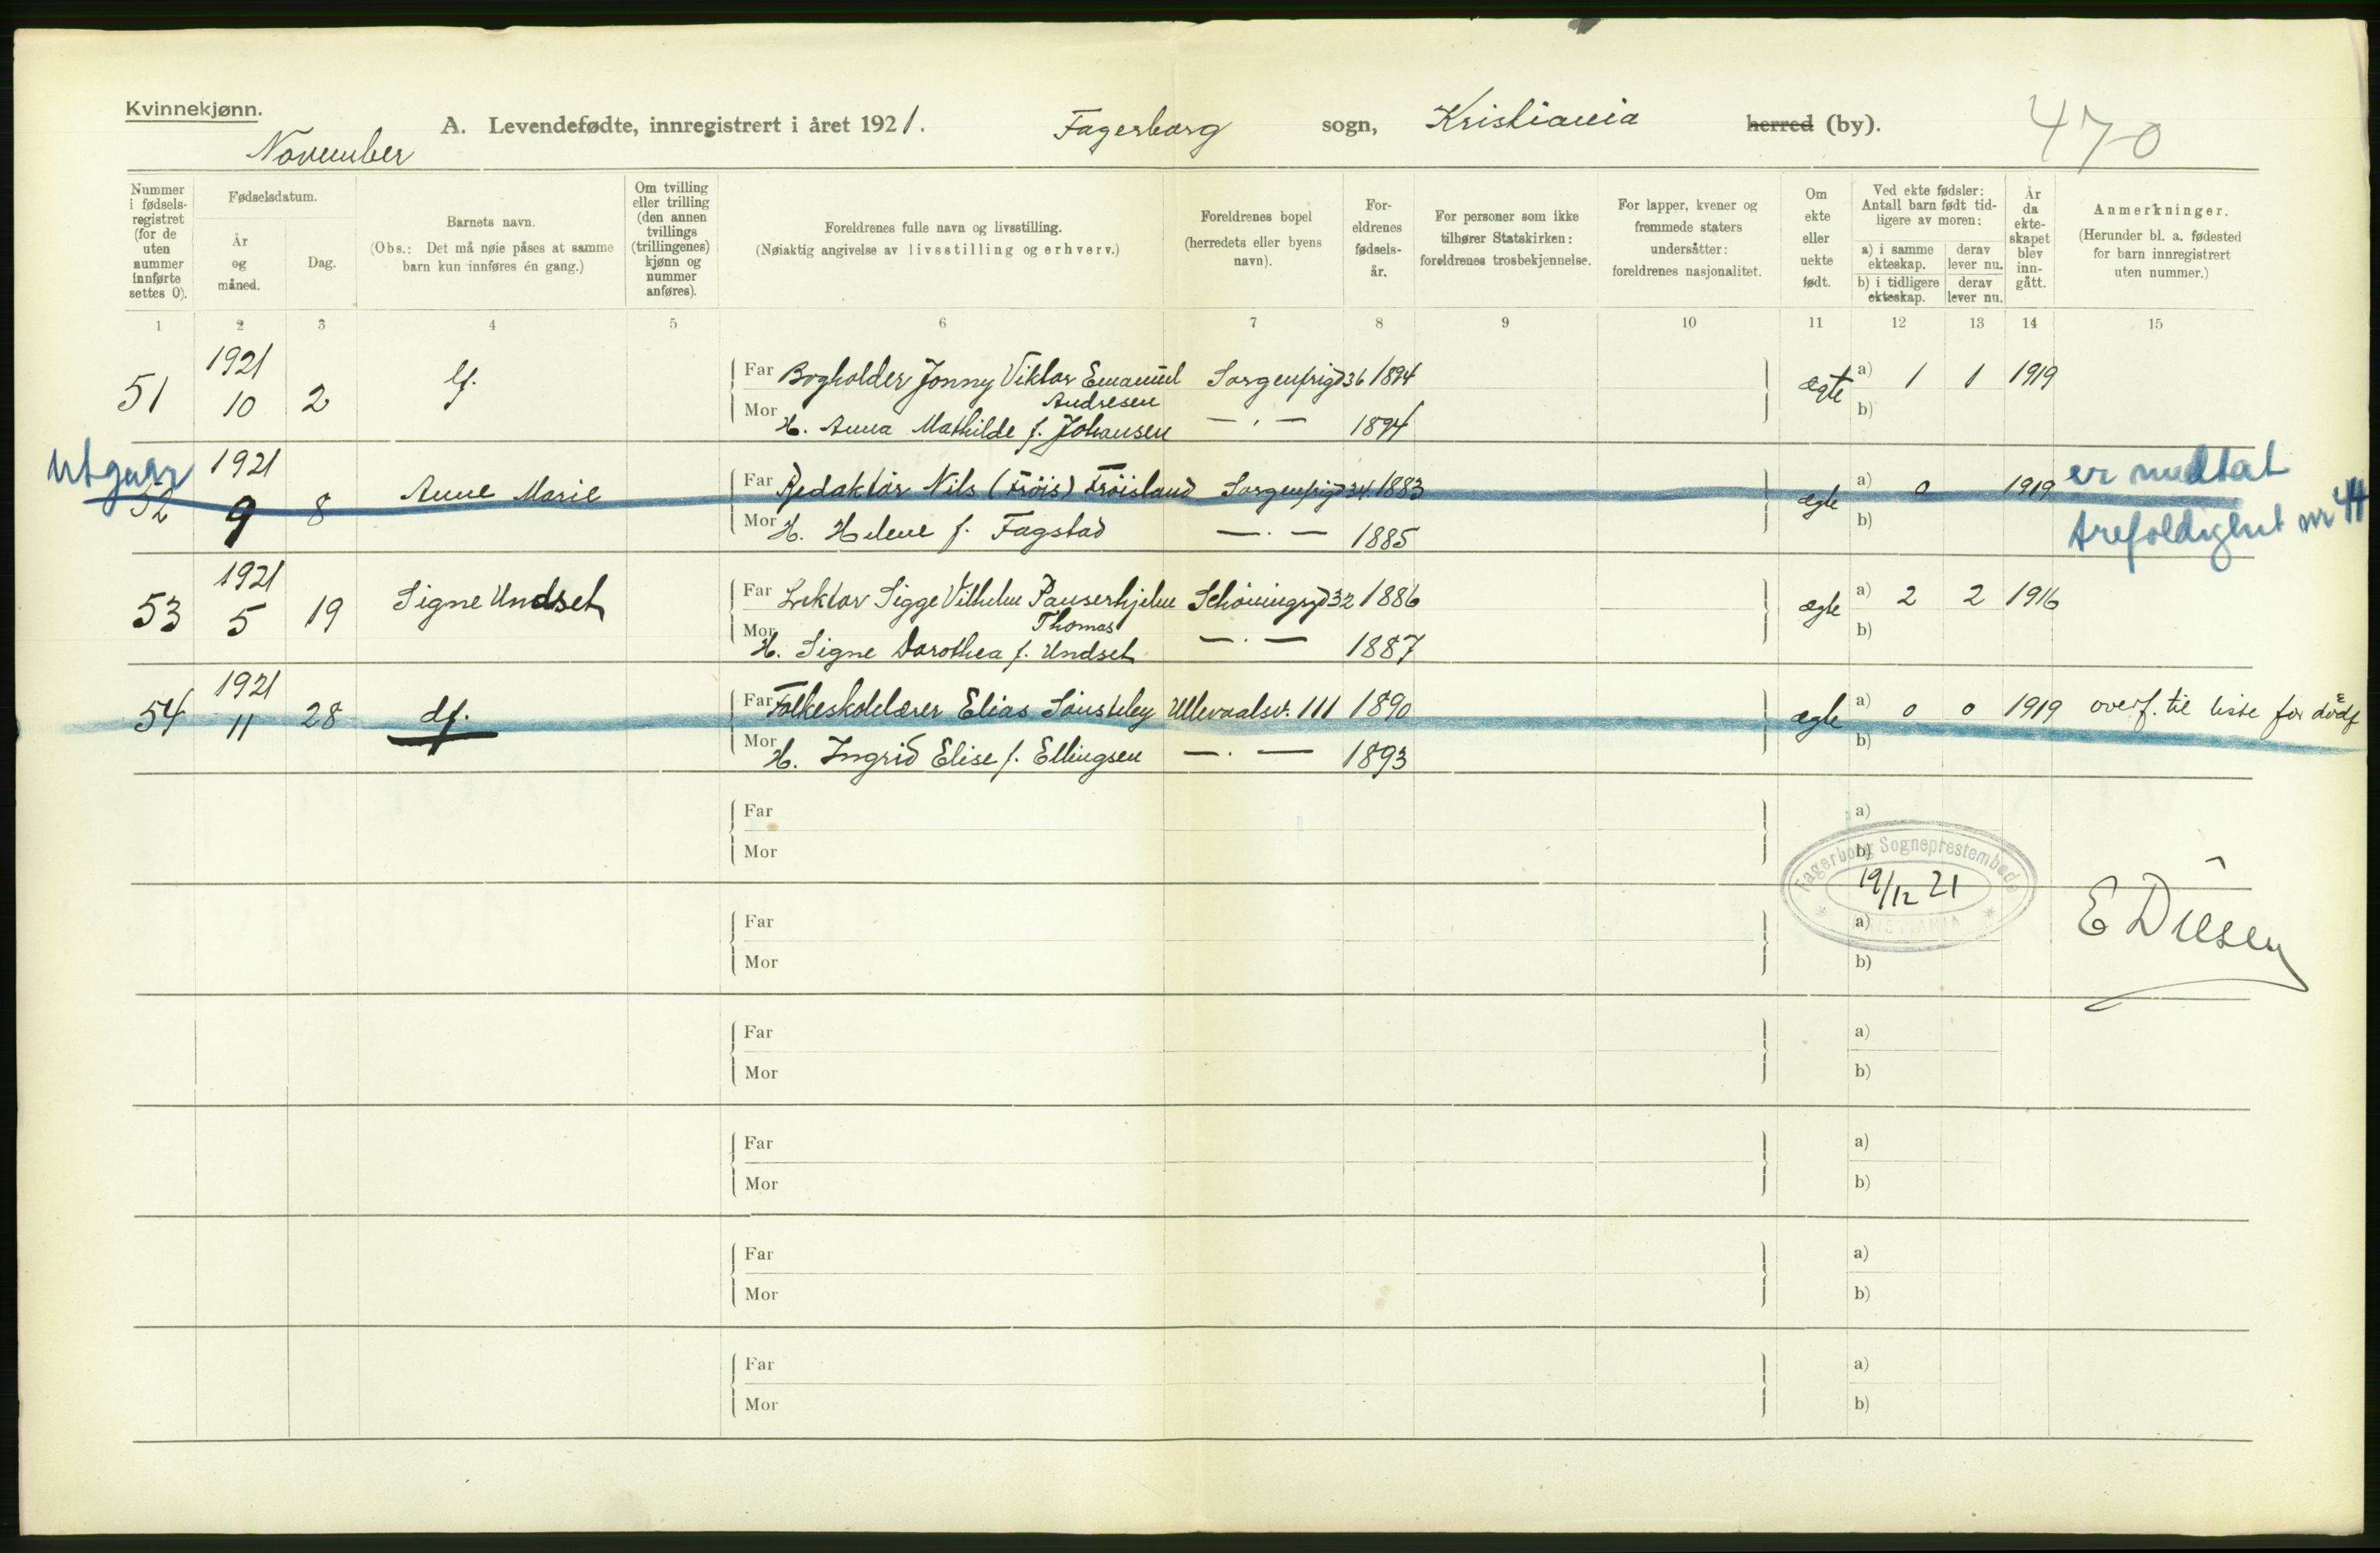 Kvinnekjønn.
A. Levendefødte, innregistrert i året 1921. Fagerborg sogn, Kristiania herred (by). 470
November
Nummer i fødselsregistret (for de uten nummer innførte settes 0).
Fødselsdatum.
År og måned.
Dag.
Barnets navn.
(Obs.: Det må nøie påses at samme barn kun innføres én gang.)
Om tvilling eller trilling (den annen tvillings (trillingenes) kjønn og nummer anføres).
Foreldrenes fulle navn og livsstilling.
(Nøiaktig angivelse av livsstilling og erhverv.)
Foreldrenes bopel (herredets eller byens navn).
Foreldrenes fødselsår.
For personer som ikke tilhører Statskirken: foreldrenes trosbekjennelse.
For lapper, kvener og fremmede staters undersåtter: foreldrenes nasjonalitet.
Om ekte eller uekte født.
Ved ekte fødsler: Antall barn født tidligere av moren:
a) i samme ekteskap. derav lever nu.
b) i tidligere ekteskap. derav lever nu.
År da ekteskapet blev inngått.
Anmerkninger.
(Herunder bl. a. fødested for barn innregistrert uten nummer.)
1 2 3 4 5 6 7 8 9 10 11 12 13 14 15
51 1921 10 2 lf. Far Bogholder Jonny Viktor Emanuel Andresen Sorgenfrigd 36 1894 ægte a) 1 1 1919
Mor H. Anna Mathilde f. Johansen — . — 1894 b)
Utgaar
52 1921 9 8 Anne Marie Far Redaktør Nils (Frøis) Frøisland Sorgenfrigd 34 1883 ægte a) 0 1919 er medtat
Mor H. Helene f. Fagstad — . — 1885 b) trefoldighet nr 44
53 1921 5 19 Signe Undset Far Lektor Sigge Vilhelm Pauserhjelm Thomas Schöningsgd 32 1886 ægte a) 2 2 1916
Mor H. Signe Dorothea f. Undset — . — 1887 b)
54 1921 11 28 df. Far Folkeskolelærer Elias Sönsteby Ullevaalsv. 111 1890 ægte a) 0 0 1919 overf. til liste for dødf
Mor H. Ingrid Elise f. Ellingsen — . — 1893 b)
Far a)
Mor b)
Fagerborg Sogneprestembede
19/12 21
KRISTIANIA
E Diesen
Far a)
Mor b)
Far a)
Mor b)
Far a)
Mor b)
Far a)
Mor b)
Far a)
Mor b)